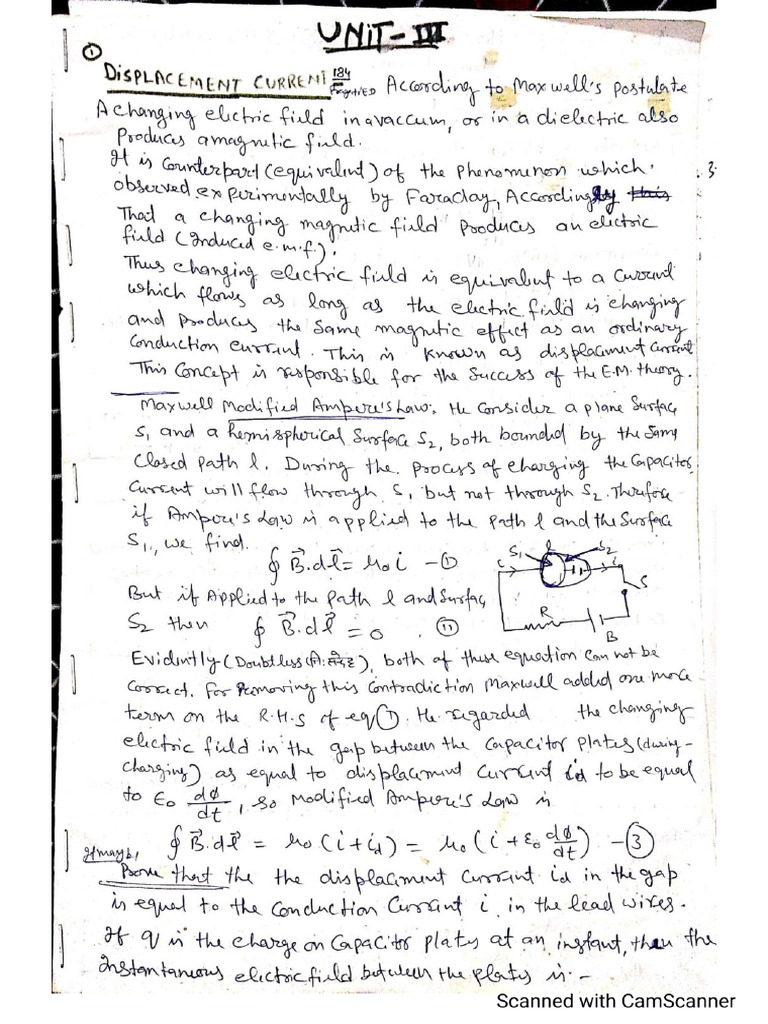 UNIT-III
① DISPLACEMENT CURRENT 184 According to Maxwell's postulate
A changing elctric field in a vaccum, or in a dielectric also
Produces a magnetic field.
It is Counterpart (equivalent) of the Phenomenon which
observed experimentally by Faraday, Accordingly this
That a changing magnetic field produces an electric
field (Induced e.m.f).
Thus changing electric field is equivalent to a Current
which flows as long as the electric field is changing
and produces the same magnetic effect as an ordinary
Conduction current. This is known as displacment Current
This Concept is responsible for the Success of the E.M. theory.
Maxwell Modified Ampere's Law: He Consider a plane Surface
S₁ and a hemispherical Surface S₂, both bounded by the Same
Closed Path l. During the process of charging the Capacitor
Current will flow through S₁ but not through S₂. Therefore
if Ampere's Law is applied to the Path l and the Surface
S₁, we find.
∮ B⃗.dl⃗ = μ₀ i — ①
S₁ l S₂
i i
S
R
B
But if Applied to the Path l and Surface
S₂ then ∮ B⃗.dl⃗ = 0 ⑪
Evidently (Doubtless (नि:संदेह), both of these equation Can not be
Correct. For Removing this Contradiction Maxwell added one more
term on the R.H.S of eq ①. He regarded the changing
electric field in the gap between the Capacitor plates (during
charging) as equal to displacment Current id to be equal
to ε₀ dφ/dt, so Modified Ampere's Law is
∮ B⃗.dl⃗ = μ₀ (i + id) = μ₀ (i + ε₀ dφ/dt) — ③
Prove that the the displacment Current id in the gap
is equal to the Conduction Current i in the lead wires.
If q is the charge on Capacitor plates at an instant, then the
Instantaneous electric field between the plates is. -
Scanned with CamScanner